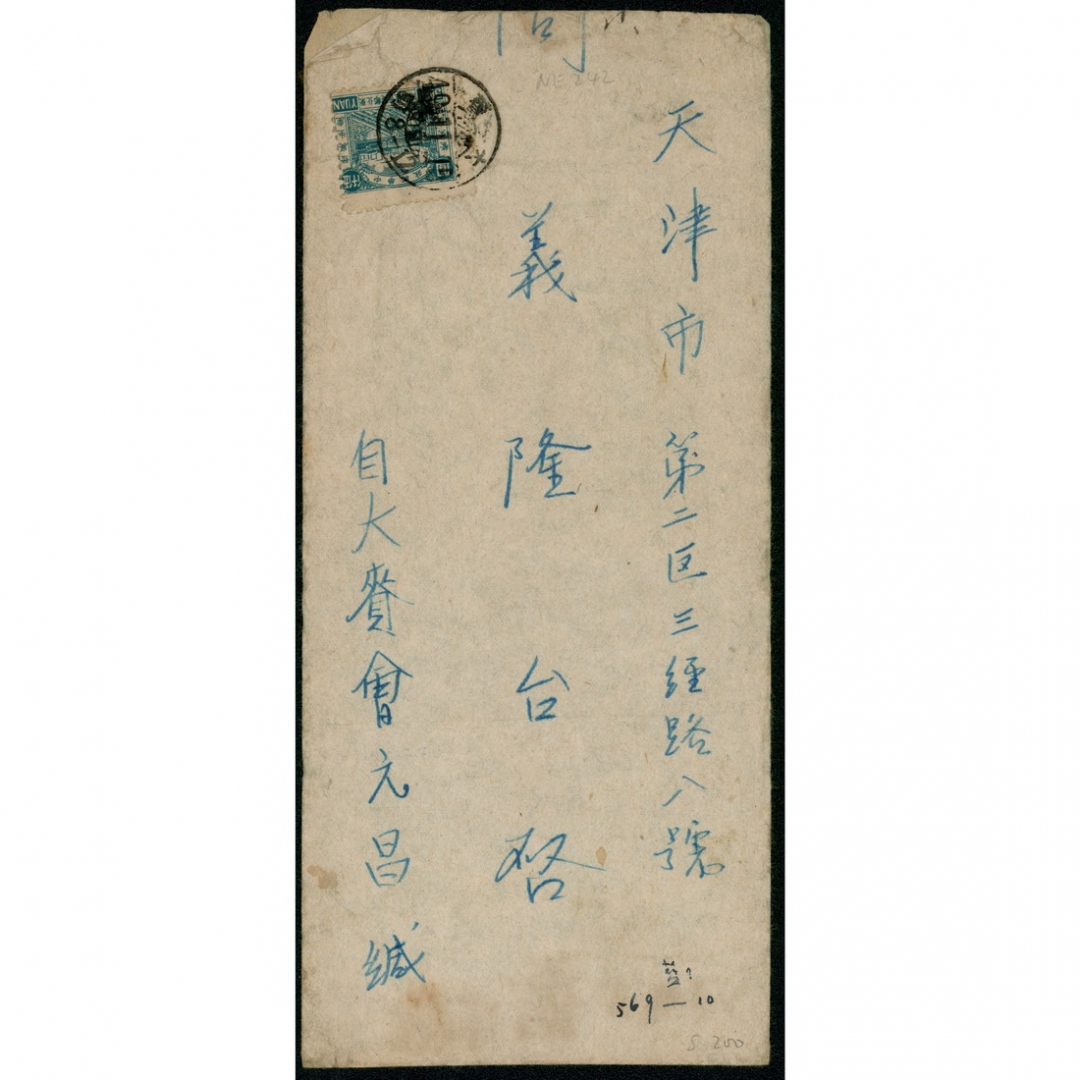 天津市第二区三經路八號
義隆台啓
自大賚會元昌緘
NE 242
YUAN
569—10
S 200